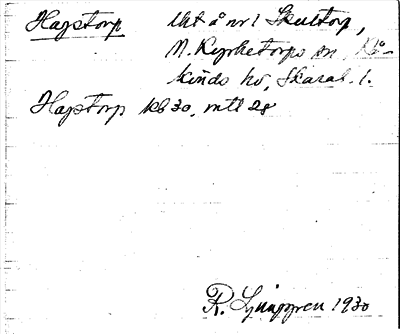 Hagstorp lht å nr 1 Skultorp,
N. Kyrketorps sn, Kå-
kinds hd, Skarab. l.
Hagstorp kb 30, mtl 28
R. Ljunggren 1930